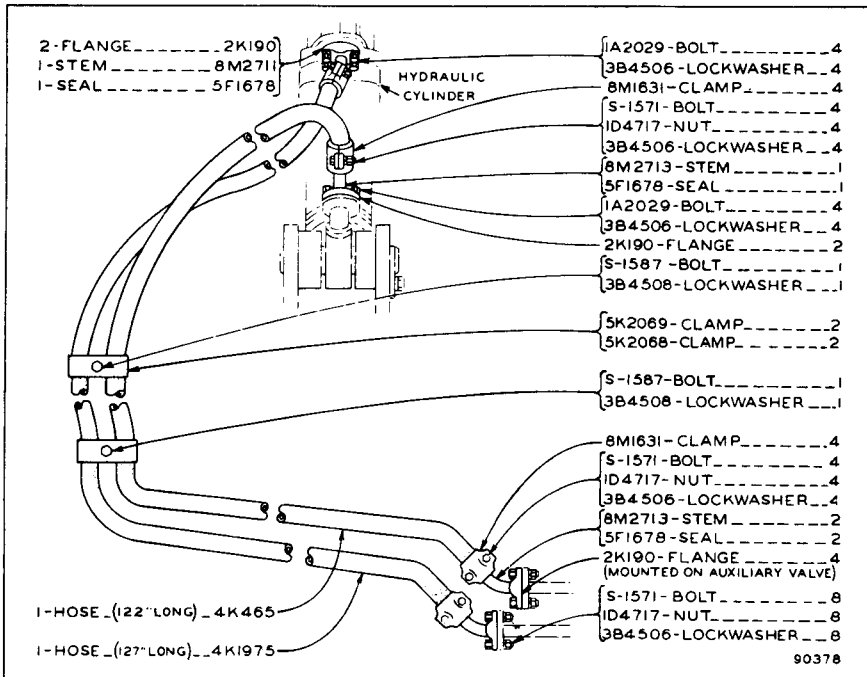 2-FLANGE____2K190
1-STEM____8M2711
1-SEAL____5F1678
HYDRAULIC
CYLINDER
1A2029-BOLT____4
3B4506-LOCKWASHER__4
8M1631-CLAMP____4
S-1571-BOLT____4
1D4717-NUT____4
3B4506-LOCKWASHER__4
8M2713-STEM____1
5F1678-SEAL____1
1A2029-BOLT____4
3B4506-LOCKWASHER__4
2K190-FLANGE____2
S-1587-BOLT____1
3B4508-LOCKWASHER__1
5K2069-CLAMP____2
5K2068-CLAMP____2
S-1587-BOLT____1
3B4508-LOCKWASHER__1
8M1631-CLAMP____4
S-1571-BOLT____4
1D4717-NUT____4
3B4506-LOCKWASHER__4
8M2713-STEM____2
5F1678-SEAL____2
2K190-FLANGE____4
(MOUNTED ON AUXILIARY VALVE)
S-1571-BOLT____8
1D4717-NUT____8
3B4506-LOCKWASHER__8
1-HOSE_(122"LONG)_4K465
1-HOSE_(127"LONG)__4K1975
90378